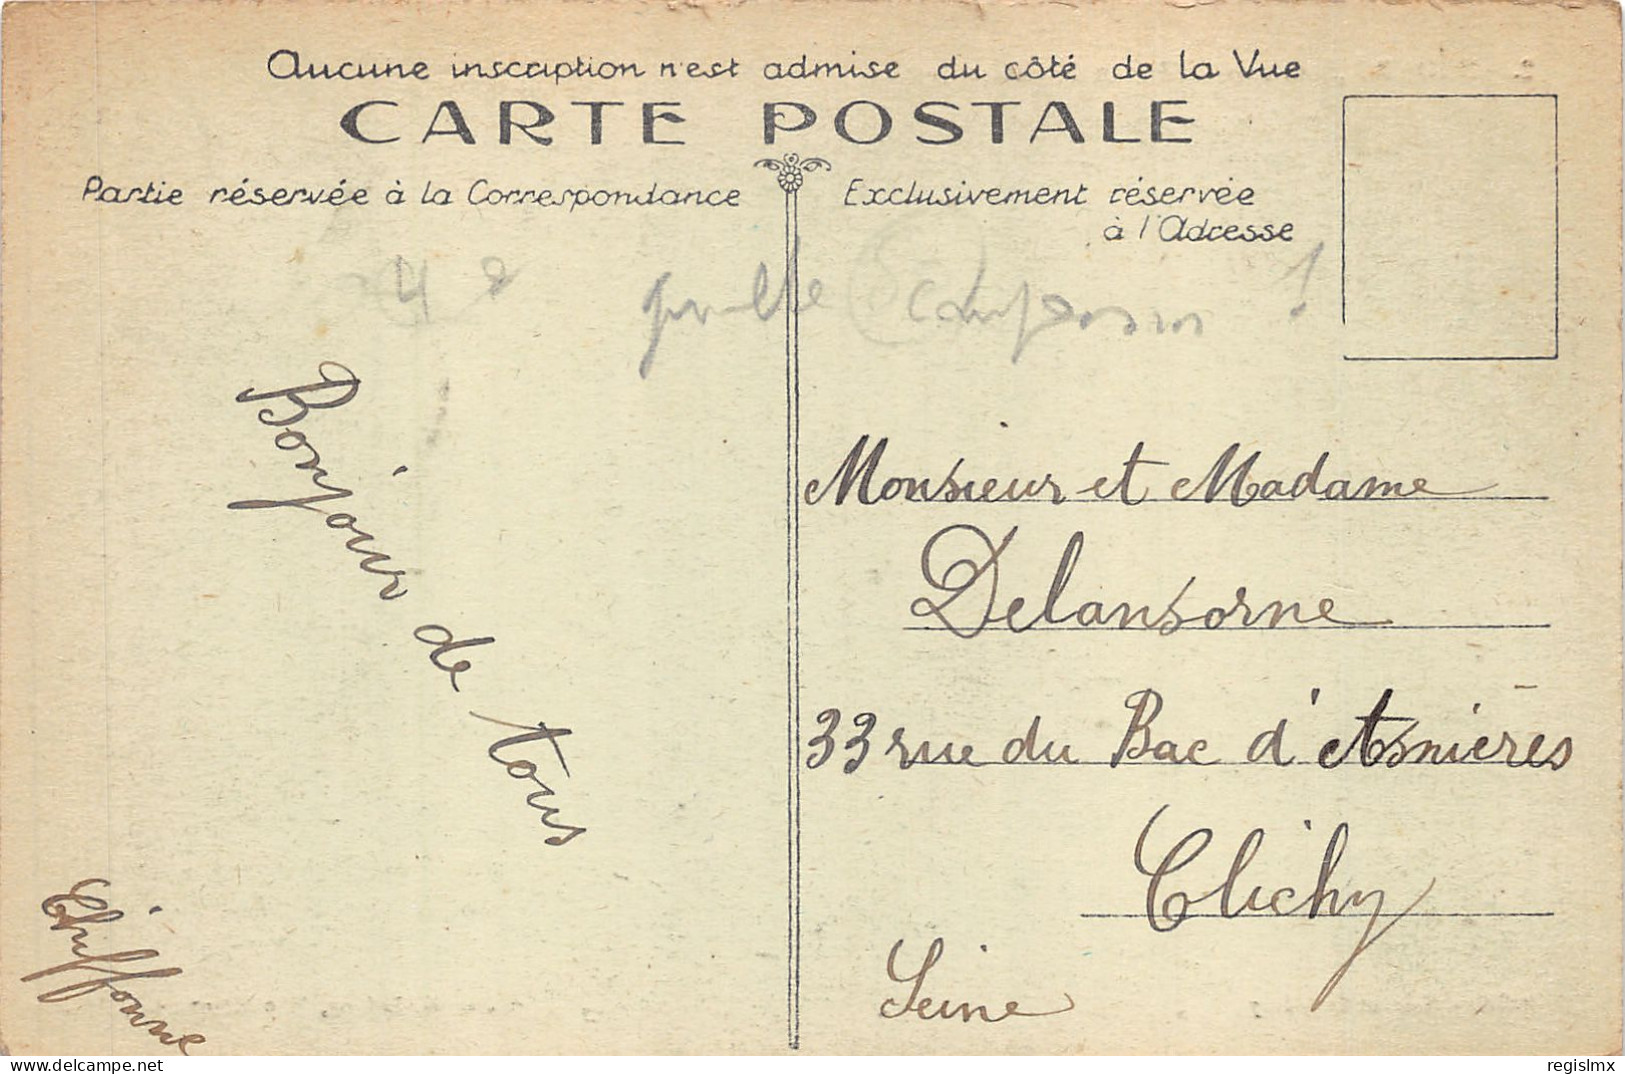 Aucune inscription n'est admise du côté de la Vue
CARTE POSTALE
Partie réservée à la Correspondance
Exclusivement réservée
à l'Adresse
4
Bonjour de tous
Chiffonne
Monsieur et Madame
Delansorne
33 rue du Bac d'Asnières
Clichy
Seine
delcampe.net
regislmx